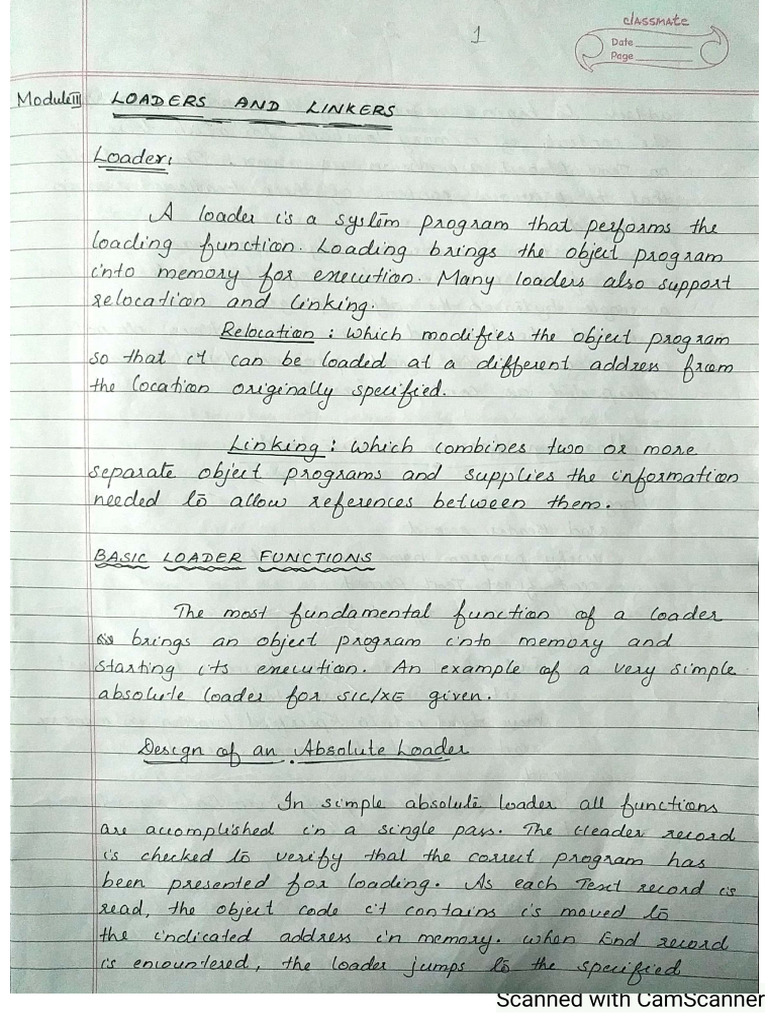 1
classmate
Date
Page
Module III LOADERS AND LINKERS
Loader:
A loader is a system program that performs the
loading function. Loading brings the object program
into memory for execution. Many loaders also support
relocation and linking.
Relocation : which modifies the object program
so that it can be loaded at a different address from
the location originally specified.
Linking : which combines two or more
separate object programs and supplies the information
needed to allow references between them.
BASIC LOADER FUNCTIONS
The most fundamental function of a loader
brings an object program into memory and
starting its execution. An example of a very simple
absolute loader for SIC/XE given.
Design of an Absolute Loader
In simple absolute loader all functions
are accomplished in a single pass. The Header record
is checked to verify that the correct program has
been presented for loading. As each Text record is
read, the object code it contains is moved to
the indicated address in memory. when End record
is encountered, the loader jumps to the specified
Scanned with CamScanner